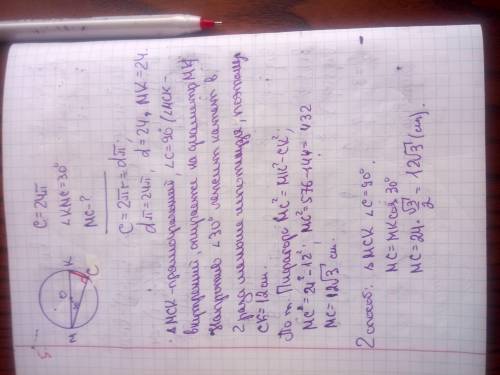 5.
M
O
K
C
30°
C = 24π
∠KMC = 30°
MC - ?
C = 2πr = dπ;
dπ = 24π, d = 24, MK = 24.
ΔMCK - прямоугольный, ∠C = 90° (∠MCK -
внутренний, опирается на диаметр MK)
Напротив ∠30° лежит катет в
2 раза меньше гипотенузы, поэтому
CK = 12 см
По т. Пифагора MC² = MK² - CK²,
MC² = 24² - 12²; MC² = 576 - 144 = 432
MC = 12√3 см.
2 способ: ΔMCK ∠C = 90°.
MC = MK cos 30°
MC = 24 · √3/2 = 12√3 (см).